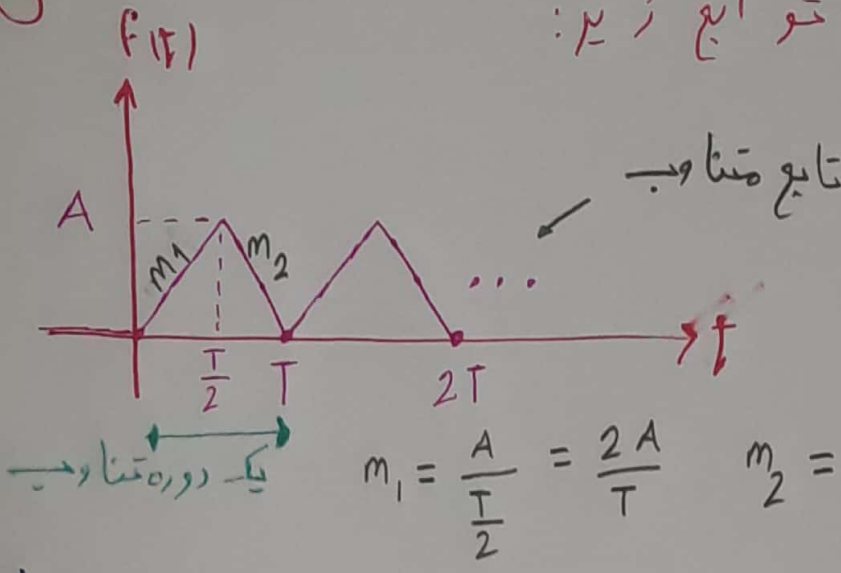 توابع زیر:
f(t)
تابع متناوب
A
m1 m2
...
t
T/2 T 2T
یک دوره تناوب
m₁ = A/(T/2) = 2A/T m₂ =